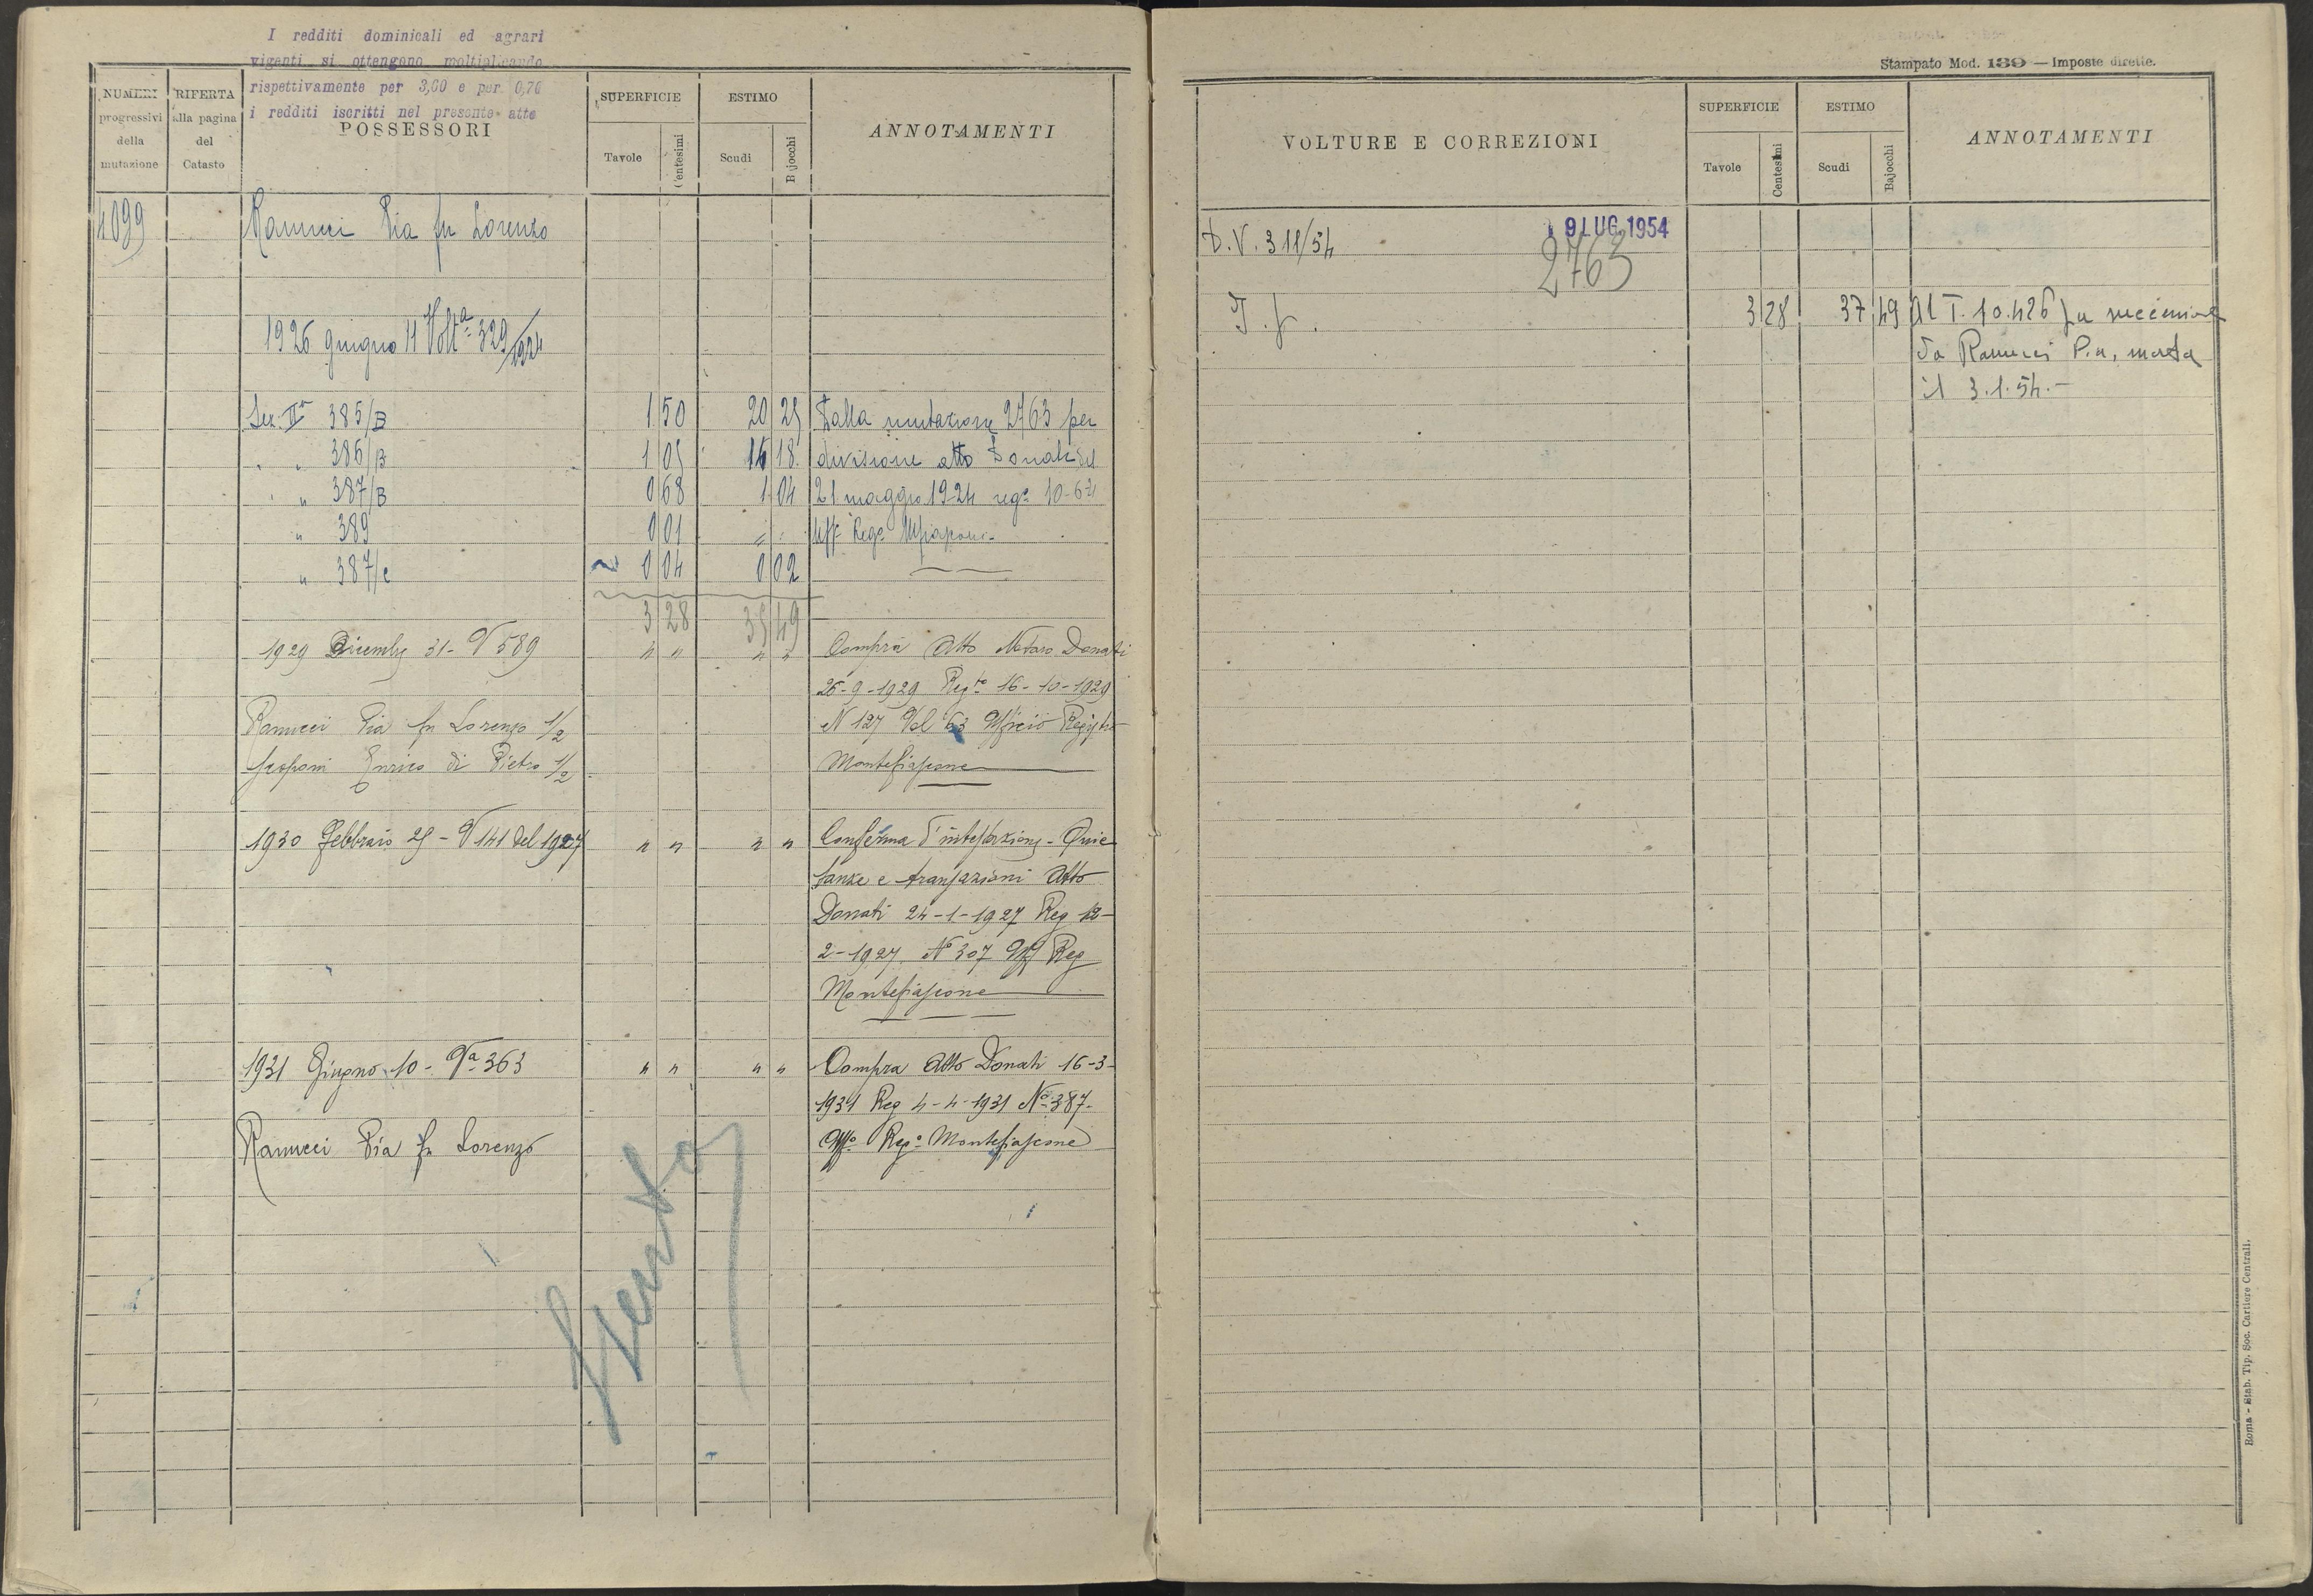 I redditi dominicali ed agrari
vigenti si ottengono moltiplicando
rispettivamente per 3,60 e per 0,70
i redditi iscritti nel presente atto
NUMERI progressivi della mutazione
RIFERTA alla pagina del Catasto
POSSESSORI
SUPERFICIE
Tavole Centesimi
ESTIMO
Scudi Bajocchi
ANNOTAMENTI
4099 Ranucci Pia fu Lorenzo
1926 giugno 11 Volt.a 329/1924
Sez. IIa 385/B 1 50 20 25 Dalla mutazione 2763 per
" " 386/B 1 05 16 18 divisione atto Donati del
" " 387/B 0 68 1 04 21 maggio 1924 reg° 10-6-24
" 389 0 01 " " Uff° Reg°
" 387/C 0 04 0 02
3 28 35 49
1929 Dicembre 31 - V 589 " " " " Compra Atto Notaro Donati
26-9-1929 Reg.to 16-10-1929
Ranucci Pia fu Lorenzo 1/2 N 127 Vol 63 Ufficio Registro
Enrico di Pietro 1/2 Montefiascone
1930 Febbraio 25 - V 141 del 1927 " " " " Conferma d'intestazione - Quie
tanze e transazioni Atto
Donati 24-1-1927 Reg 12-
2-1927 N° 307 Uff Reg
Montefiascone
1931 Giugno 10 - Va 363 " " " " Compra Atto Donati 16-3-
1931 Reg 4-4-1931 N° 387-
Ranucci Pia fu Lorenzo Uff° Reg° Montefiascone
Stampato Mod. 139 — Imposte dirette.
VOLTURE E CORREZIONI
SUPERFICIE
Tavole Centesimi
ESTIMO
Scudi Bajocchi
ANNOTAMENTI
D.V. 311/54 9 LUG. 1954
2763
T. f. 3 28 37 49 Al T. 10.426 per successione
da Ranucci Pia, morta
il 3.1.54.-
Roma - Stab. Tip. Soc. Cartiere Centrali.